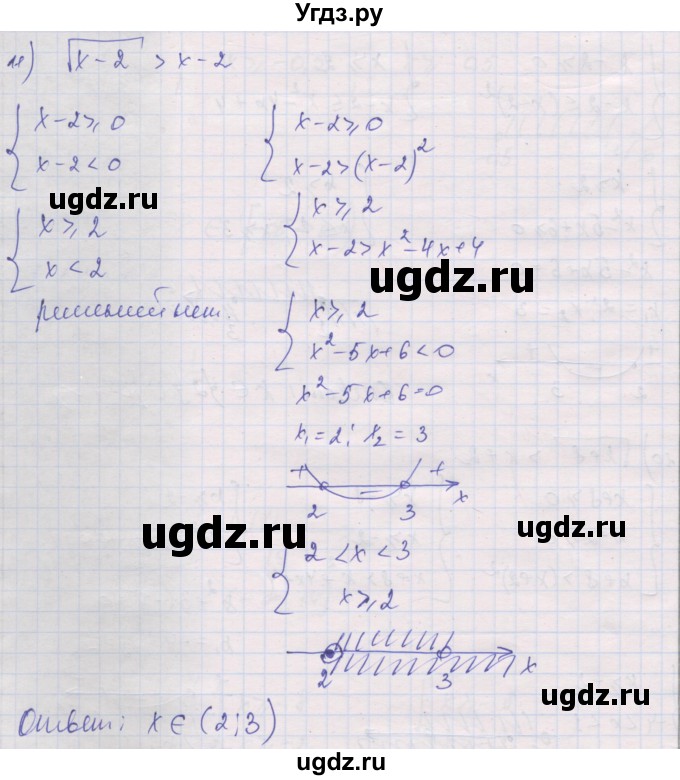 Угдз.ру
11) √(x-2) > x-2
{ x-2 ≥ 0
x-2 < 0
{ x ≥ 2
x < 2
решений нет.
{ x-2 ≥ 0
x-2 > (x-2)²
{ x ≥ 2
x-2 > x²-4x+4
{ x ≥ 2
x²-5x+6 < 0
x²-5x+6=0
x₁=2; x₂=3
+ - + x
2 3
{ 2 < x < 3
x ≥ 2
2 3 x
Ответ: x ∈ (2;3)
ugdz.ru
ugdz.ru
ugdz.ru
ugdz.ru
ugdz.ru
ugdz.ru
ugdz.ru
ugdz.ru